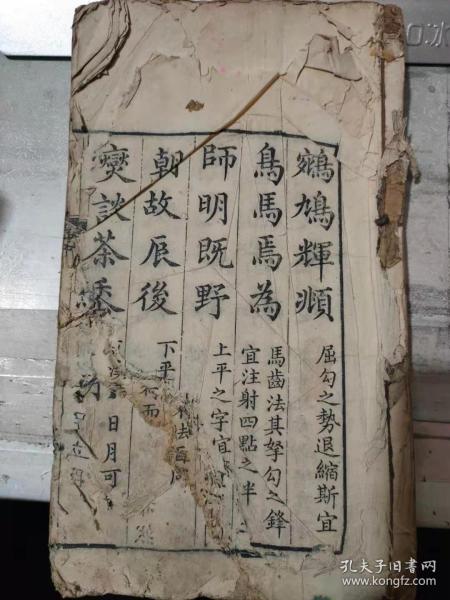 鵷鳩輝順 屈勾之勢退縮斯宜
鳥馬焉為 馬齒法其孥勾之鋒
宜注射四點之半
師明既野 上平之字宜
朝故辰後 下平
變談茶黍
日月可
孔夫子旧书网
www.kongfz.com